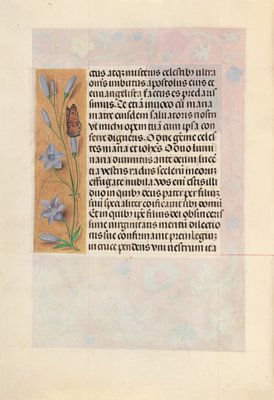 ctus atq; misterus celestibus ultra
omis imbutus apostolus eius et
euangelista factus es preclaris
simus. Te etiam inuoco cum maria
matre eiusdem saluatoris nostri
ut michi opem tuam cum ipsa con
ferre digneris. O due gemme celes
tes maria et iohes. O duo lumi
naria diuinitus ante deum lucen
tia vestris radiis scelerum meorum
effugate nubila. Vos enim estis illi
duo in quibus deus pater per filium
suum specialiter edificauit sibi domum
Et in quibus ipse filius dei ob sincerissi
me virginitatis meritum dilectio
nis sue confirmauit preuilegium
in cruce pendens vni vestrum ita